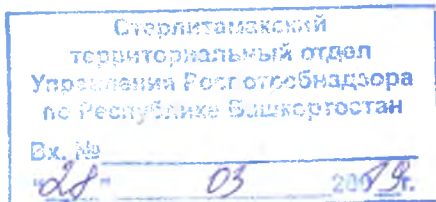 Стерлитамакский
территориальный отдел
Управления Роспотребнадзора
по Республике Башкортостан
Вх. №
"28" 03 2019г.